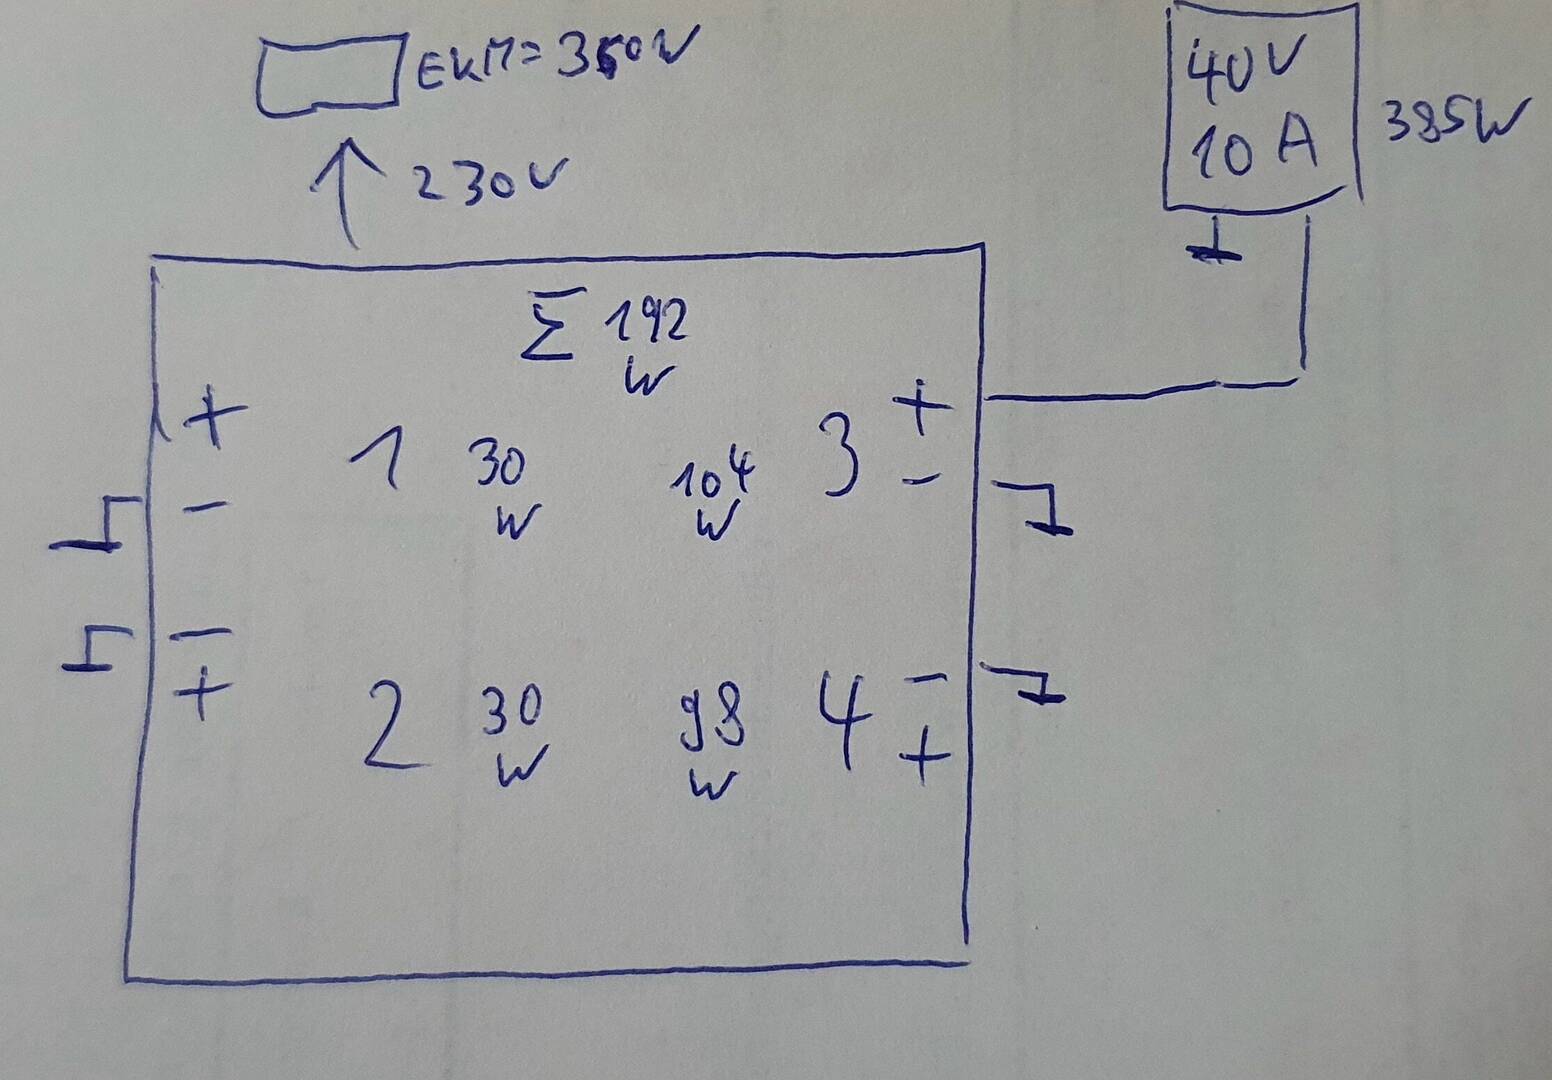 EKM=350W
230V
40V
10A
385W
Σ 192
W
+
1 30
W
104 3
W
+
-
-
-
+
2 30
W
98 4
W
-
+